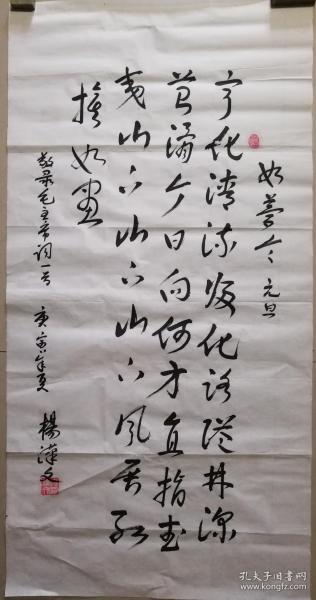 如夢令 元旦
宁化清流归化路隘林深
苔滑今日向何方直指武
夷山下山下山下风展红
旗如画
敬录毛主席词一首 庚寅年夏 楊漢文
孔夫子旧书网